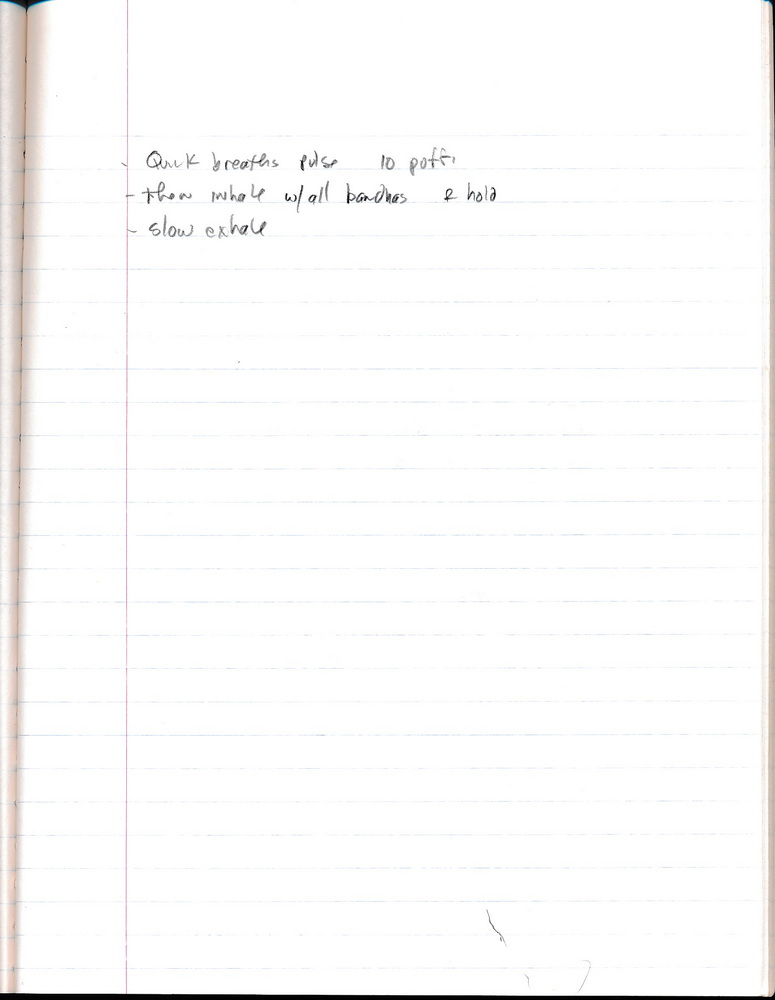 - Quick breaths pulse 10 puffs
- then inhale w/all bandhas & hold
- slow exhale